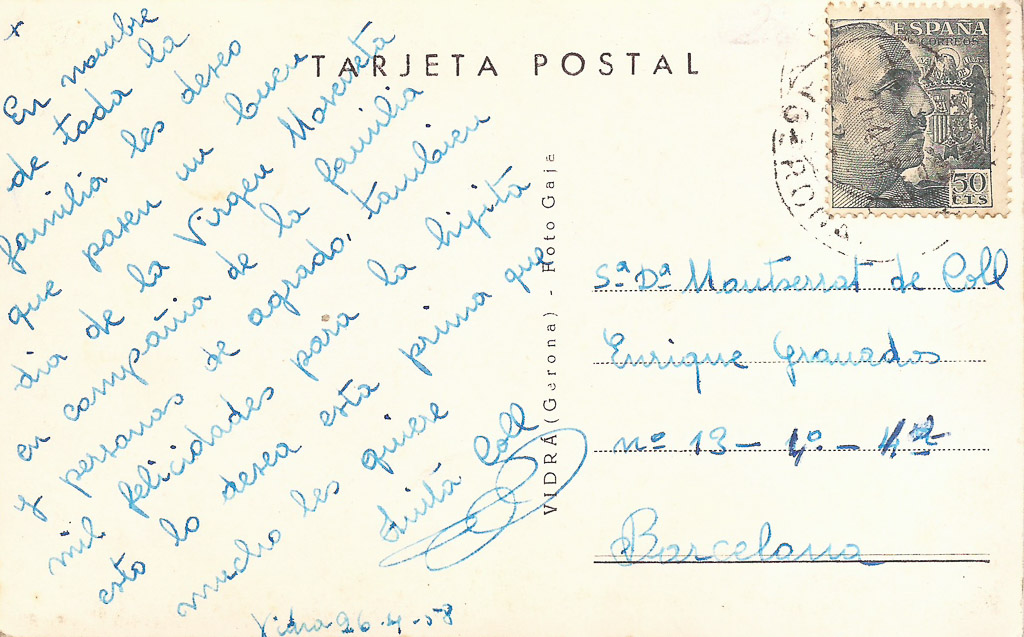 TARJETA POSTAL
ESPAÑA
CORREOS
50
CTS
x
En nombre
de toda la
familia les deseo
que pasen un buen
dia de la Virgen Moreneta
en compañia de la familia
y personas de agrado, tambien
mil felicidades para la hijita
esto lo desea esta prima que
mucho les quiere
Coll
26-4-58
VIDRÁ (Gerona) - Foto Gaja
Sª Dª Montserrat de Coll
Enrique Granados
nº 13 - 4º -
Barcelona